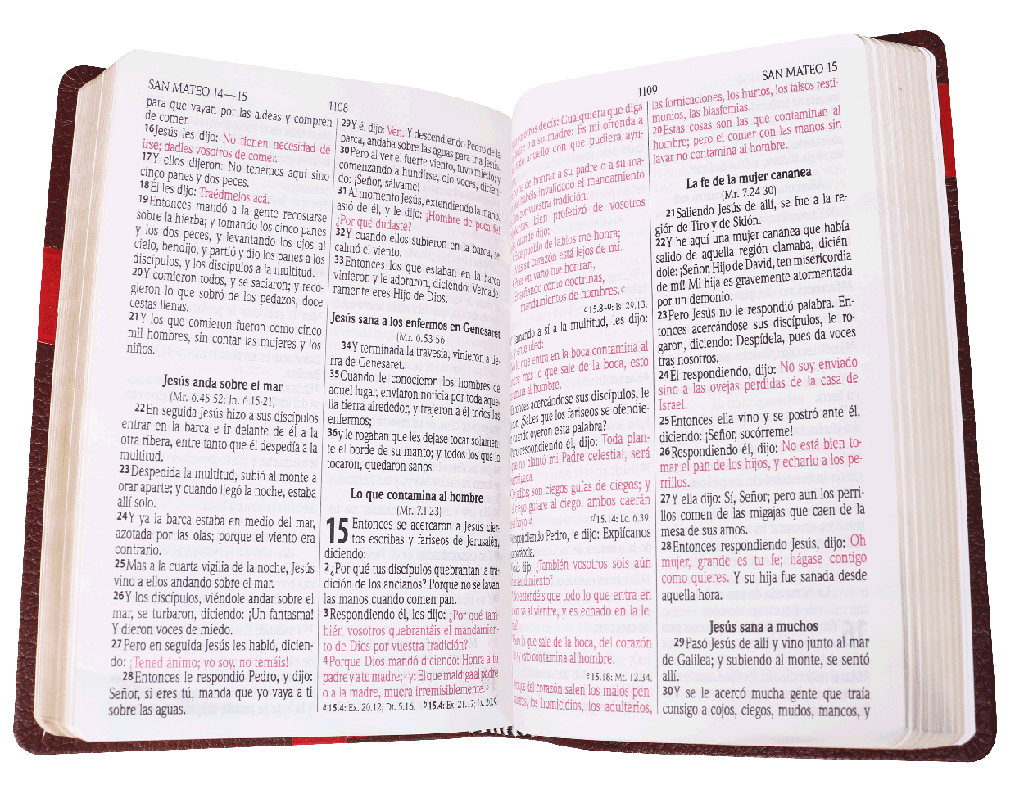 SAN MATEO 14—15
1108
para que vayan por las aldeas y compren
de comer.
16Jesús les dijo: No tienen necesidad de
irse; dadles vosotros de comer.
17Y ellos dijeron: No tenemos aquí sino
cinco panes y dos peces.
18Él les dijo: Traédmelos acá.
19Entonces mandó a la gente recostarse
sobre la hierba; y tomando los cinco panes
y los dos peces, y levantando los ojos al
cielo, bendijo, y partió y dio los panes a los
discípulos, y los discípulos a la multitud.
20Y comieron todos, y se saciaron; y reco-
gieron lo que sobró de los pedazos, doce
cestas llenas.
21Y los que comieron fueron como cinco
mil hombres, sin contar las mujeres y los
niños.
Jesús anda sobre el mar
(Mr. 6.45-52; Jn. 6.15-21)
22En seguida Jesús hizo a sus discípulos
entrar en la barca e ir delante de él a la
otra ribera, entre tanto que él despedía a la
multitud.
23Despedida la multitud, subió al monte a
orar aparte; y cuando llegó la noche, estaba
allí solo.
24Y ya la barca estaba en medio del mar,
azotada por las olas; porque el viento era
contrario.
25Mas a la cuarta vigilia de la noche, Jesús
vino a ellos andando sobre el mar.
26Y los discípulos, viéndole andar sobre el
mar, se turbaron, diciendo: ¡Un fantasma!
Y dieron voces de miedo.
27Pero en seguida Jesús les habló, dicien-
do: ¡Tened ánimo; yo soy, no temáis!
28Entonces le respondió Pedro, y dijo:
Señor, si eres tú, manda que yo vaya a ti
sobre las aguas.
29Y él dijo: Ven. Y descendiendo Pedro de la
barca, andaba sobre las aguas para ir a Jesús.
30Pero al ver el fuerte viento, tuvo miedo; y
comenzando a hundirse, dio voces, dicien-
do: ¡Señor, sálvame!
31Al momento Jesús, extendiendo la mano,
asió de él, y le dijo: ¡Hombre de poca fe!
¿Por qué dudaste?
32Y cuando ellos subieron en la barca, se
calmó el viento.
33Entonces los que estaban en la barca
vinieron y le adoraron, diciendo: Verdade-
ramente eres Hijo de Dios.
Jesús sana a los enfermos en Genesaret
(Mr. 6.53-56)
34Y terminada la travesía, vinieron a tie-
rra de Genesaret.
35Cuando le conocieron los hombres de
aquel lugar, enviaron noticia por toda aque-
lla tierra alrededor, y trajeron a él todos los
enfermos;
36y le rogaban que les dejase tocar solamen-
te el borde de su manto; y todos los que lo
tocaron, quedaron sanos.
Lo que contamina al hombre
(Mr. 7.1-23)
15 Entonces se acercaron a Jesús cier-
tos escribas y fariseos de Jerusalén,
diciendo:
2¿Por qué tus discípulos quebrantan la tra-
dición de los ancianos? Porque no se lavan
las manos cuando comen pan.
3Respondiendo él, les dijo: ¿Por qué tam-
bién vosotros quebrantáis el mandamien-
to de Dios por vuestra tradición?
4Porque Dios mandó diciendo: Honra a tu
padre y a tu madre; y: El que maldiga al padre
o a la madre, muera irremisiblemente.
15.4: Ex. 20.12; Dt. 5.16. 15.4: Ex. 21.17; Lv. 20.9.
1109
SAN MATEO 15
decís: Cualquiera que diga
a su madre: Es mi ofrenda a
aquello con que pudiera ayu-
de honrar a su padre o a su ma-
habéis invalidado el mandamiento
por vuestra tradición.
bien profetizó de vosotros
cuando dijo:
pueblo de labios me honra;
Mas su corazón está lejos de mí.
Pues en vano me honran,
Enseñando como doctrinas,
mandamientos de hombres.
15.8-9: Is. 29.13.
llamando a sí a la multitud, les dijo:
entended:
lo que entra en la boca contamina al
mas lo que sale de la boca, esto
al hombre.
Entonces acercándose sus discípulos, le
¿Sabes que los fariseos se ofendie-
cuando oyeron esta palabra?
respondiendo él, dijo: Toda plan-
que no plantó mi Padre celestial, será
son ciegos guías de ciegos; y
el ciego guiare al ciego, ambos caerán
hoyo.
15.14: Lc. 6.39.
Respondiendo Pedro, le dijo: Explícanos
parábola.
dijo: ¿También vosotros sois aún
entendimiento?
entendéis que todo lo que entra en
va al vientre, y es echado en la le-
lo que sale de la boca, del corazón
y esto contamina al hombre.
15.18: Mt. 12.34.
del corazón salen los malos pen-
los homicidios, los adulterios,
las fornicaciones, los hurtos, los falsos testi-
monios, las blasfemias.
20Estas cosas son las que contaminan al
hombre; pero el comer con las manos sin
lavar no contamina al hombre.
La fe de la mujer cananea
(Mr. 7.24-30)
21Saliendo Jesús de allí, se fue a la re-
gión de Tiro y de Sidón.
22Y he aquí una mujer cananea que había
salido de aquella región clamaba, dicién-
dole: ¡Señor, Hijo de David, ten misericordia
de mí! Mi hija es gravemente atormentada
por un demonio.
23Pero Jesús no le respondió palabra. En-
tonces acercándose sus discípulos, le ro-
garon, diciendo: Despídela, pues da voces
tras nosotros.
24Él respondiendo, dijo: No soy enviado
sino a las ovejas perdidas de la casa de
Israel.
25Entonces ella vino y se postró ante él,
diciendo: ¡Señor, socórreme!
26Respondiendo él, dijo: No está bien to-
mar el pan de los hijos, y echarlo a los pe-
rrillos.
27Y ella dijo: Sí, Señor; pero aun los perri-
llos comen de las migajas que caen de la
mesa de sus amos.
28Entonces respondiendo Jesús, dijo: Oh
mujer, grande es tu fe; hágase contigo
como quieres. Y su hija fue sanada desde
aquella hora.
Jesús sana a muchos
29Pasó Jesús de allí y vino junto al mar
de Galilea; y subiendo al monte, se sentó
allí.
30Y se le acercó mucha gente que traía
consigo a cojos, ciegos, mudos, mancos, y